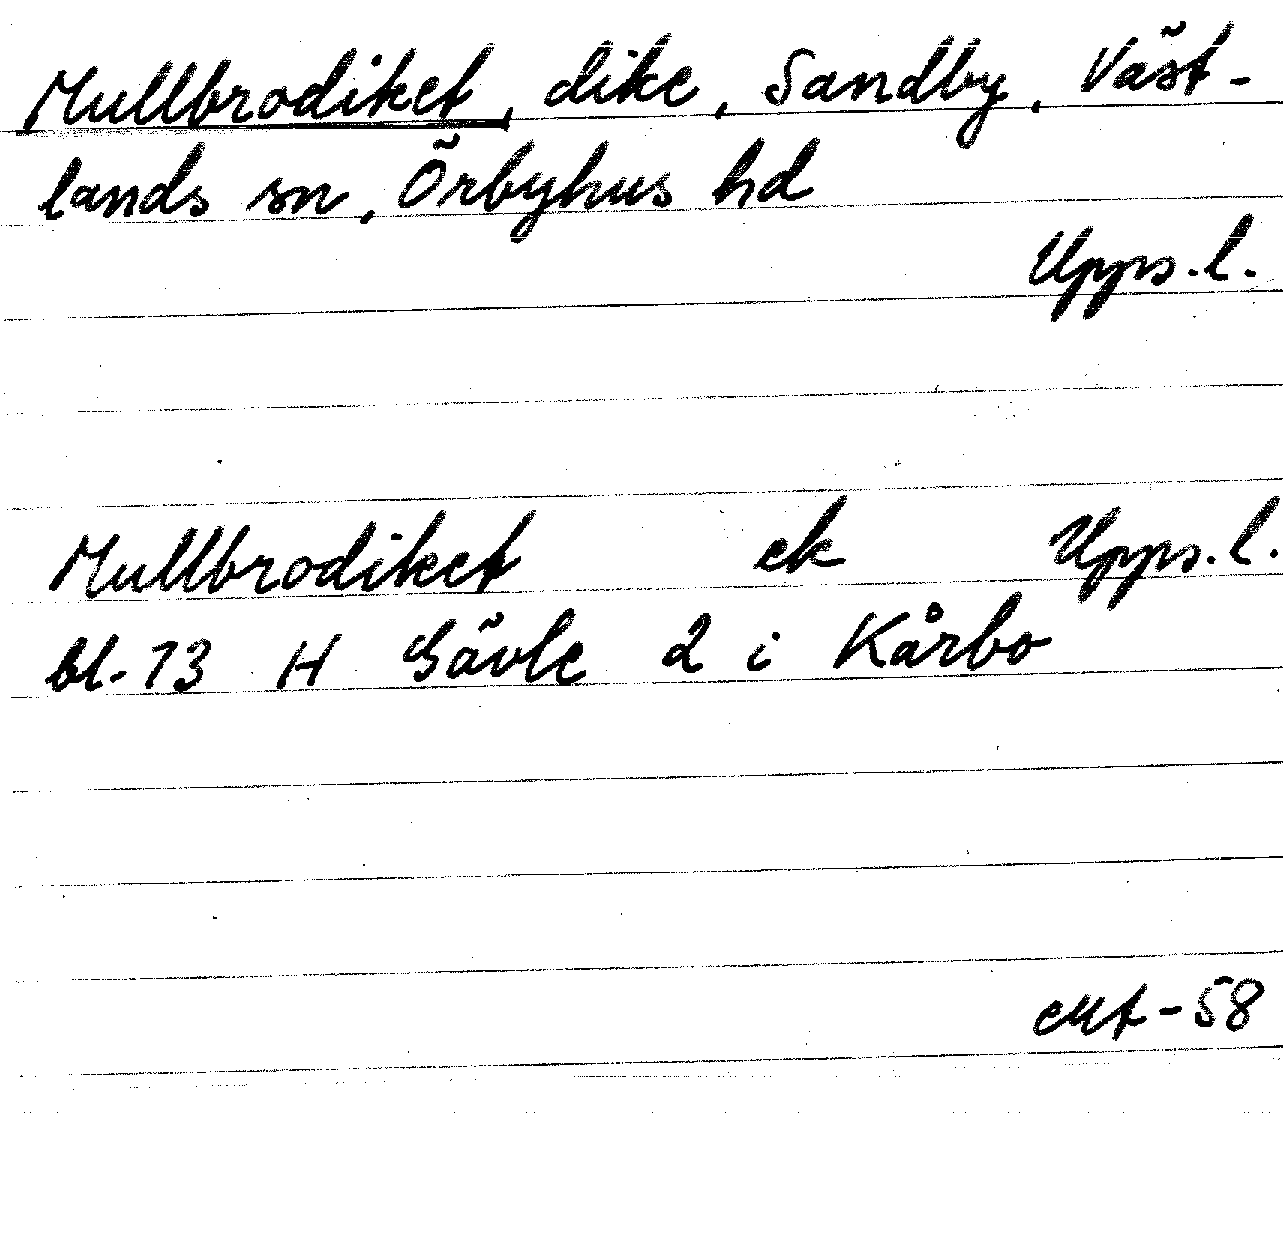 Mullbrodiket, dike, Sandby, Väst-
lands sn, Örbyhus hd
Upps. l.
Mullbrodiket ek Upps. l.
bl. 13 H Gävle 2 i Kårbo
-58